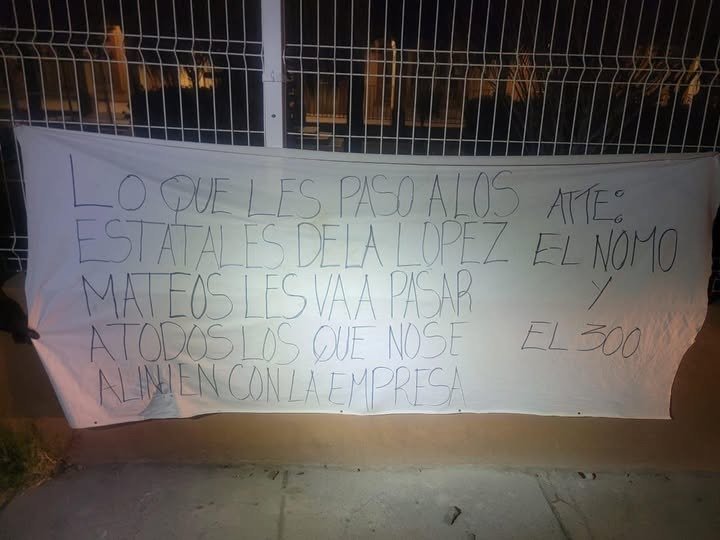 LO QUE LES PASO A LOS
ESTATALES DE LA LOPEZ
MATEOS LES VA A PASAR
A TODOS LOS QUE NO SE
ALINIEN CON LA EMPRESA
ATTE:
EL NOMO
Y
EL 300